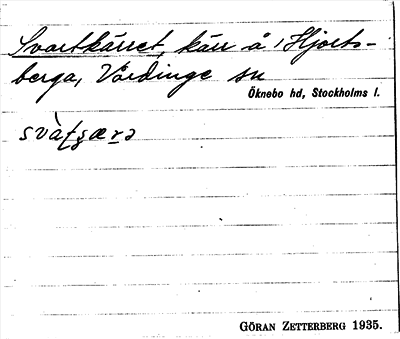 Svartkärret, kärr å Hjorts-
berga, Vårdinge sn
Öknebo hd, Stockholms l.
GÖRAN ZETTERBERG 1935.